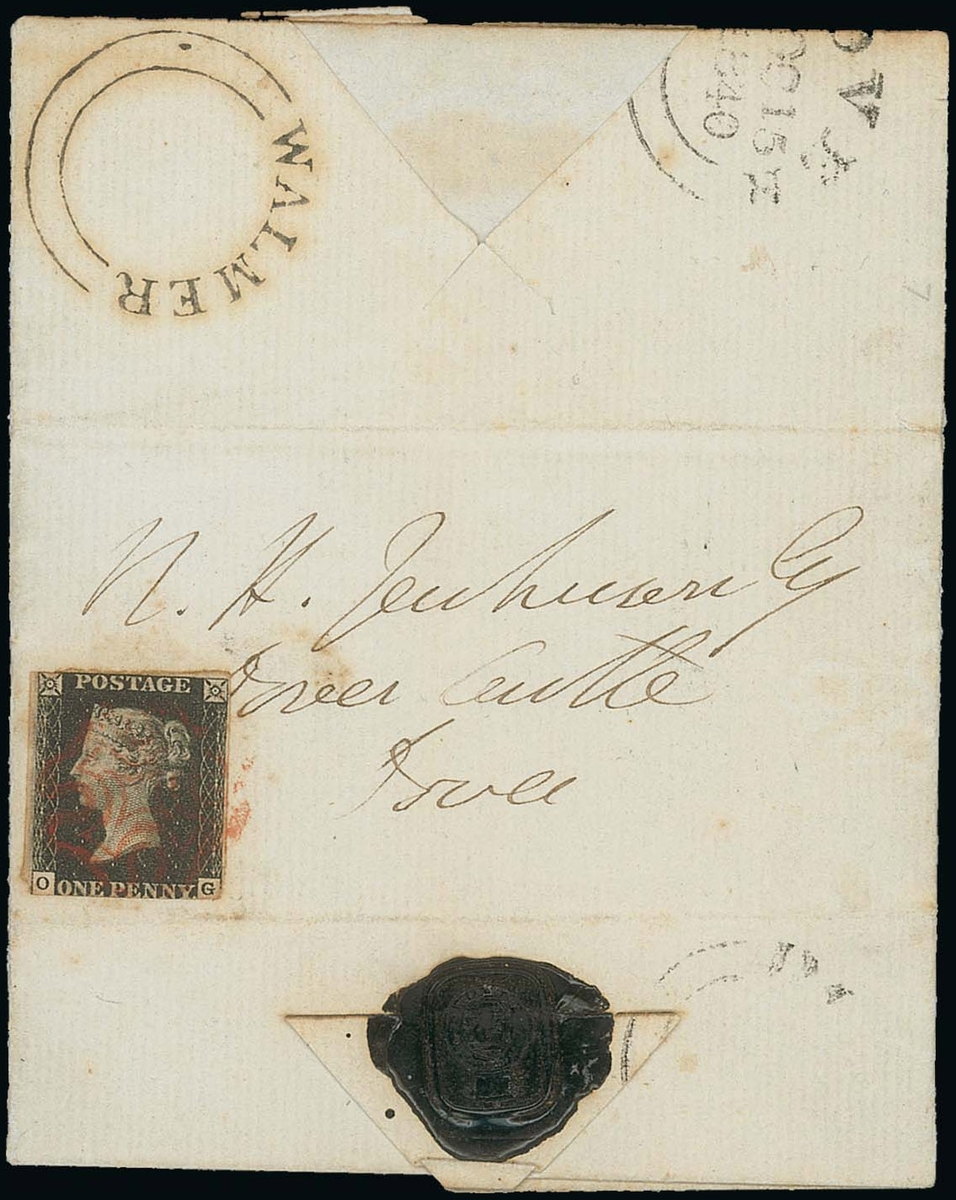 WALMER
OC 15
1840
N. H. Jenkinson Esq
Dover Castle
Dover
POSTAGE
O ONE PENNY. G